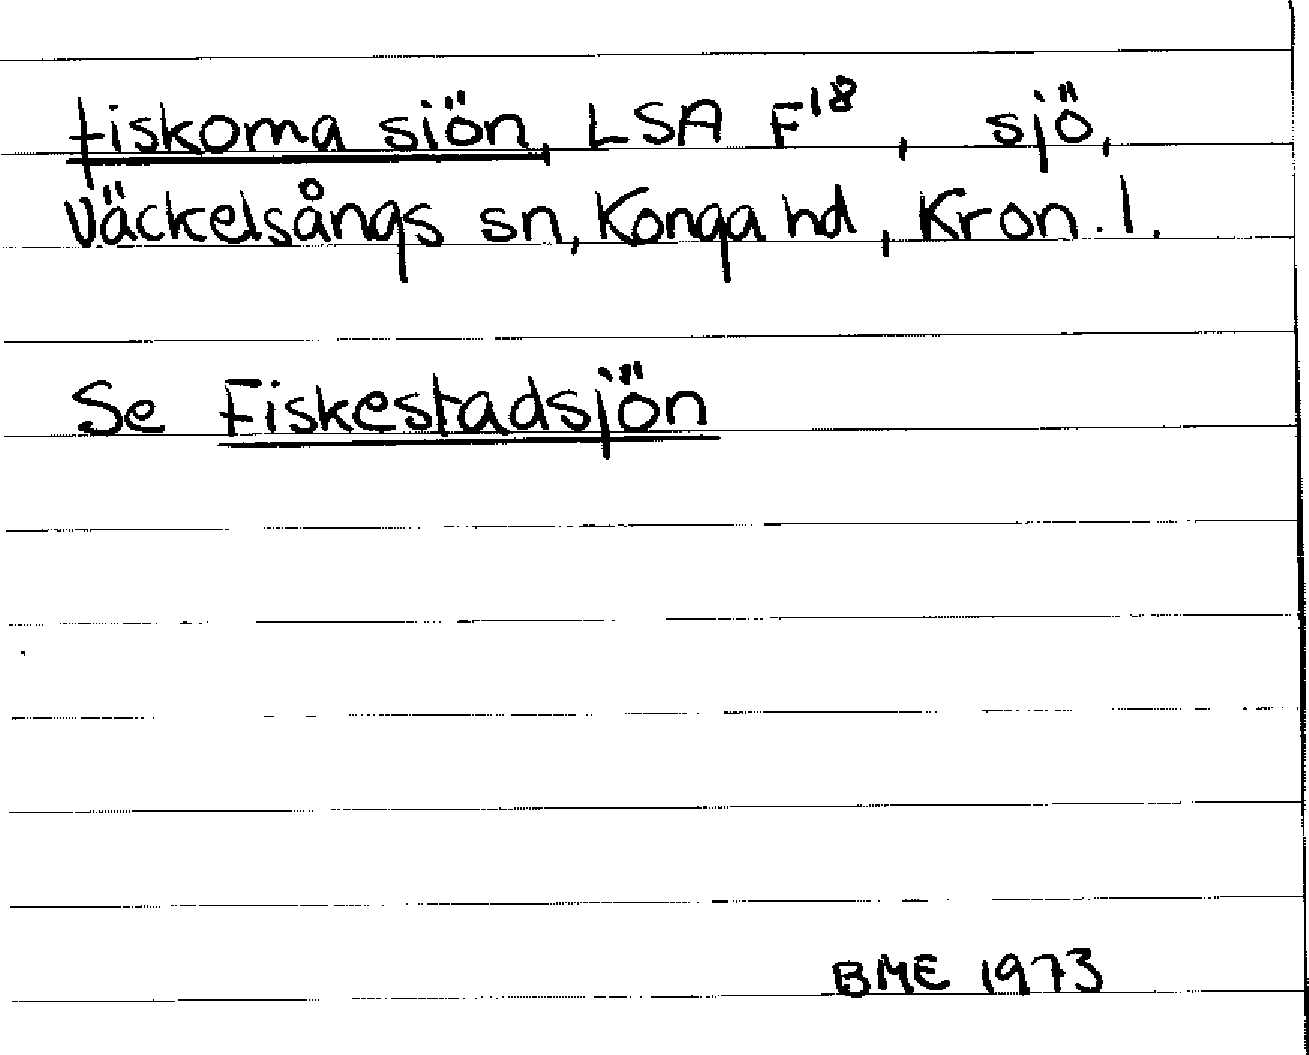 fiskoma siön, LSA F¹⁸, sjö,
Väckelsångs sn, Konga hd, Kron. l.
Se Fiskestadsjön
BME 1973